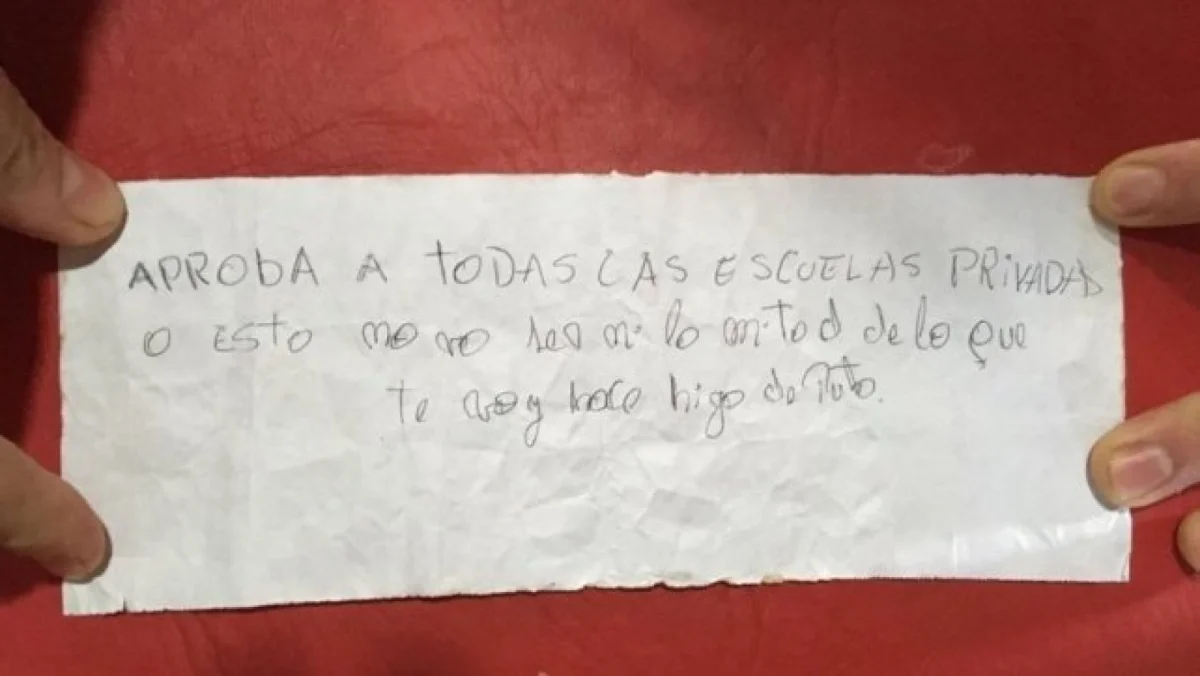 APROBA A TODAS LAS ESCUELAS PRIVADAS
o ESto no va ser ni la mitad de lo que
te voy hace higo de Puto.